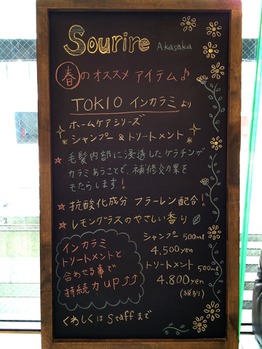 Sourire Akasaka
春のオススメ アイテム♪
TOKIO インカラミより
ホームケアシリーズ
シャンプー & トリートメント
毛髪内部に浸透したケラチンが
カラミあうことで、補修効果を
もたらします!
★ 抗酸化成分 フラーレン配合!
★ レモングラスのやさしい香り
インカラミ
トリートメントと
合わせる事で
持続力up↑↑
シャンプー 500ml
4,500yen
トリートメント 500ml
4,800yen
(税別)
くわしくは Staffまで